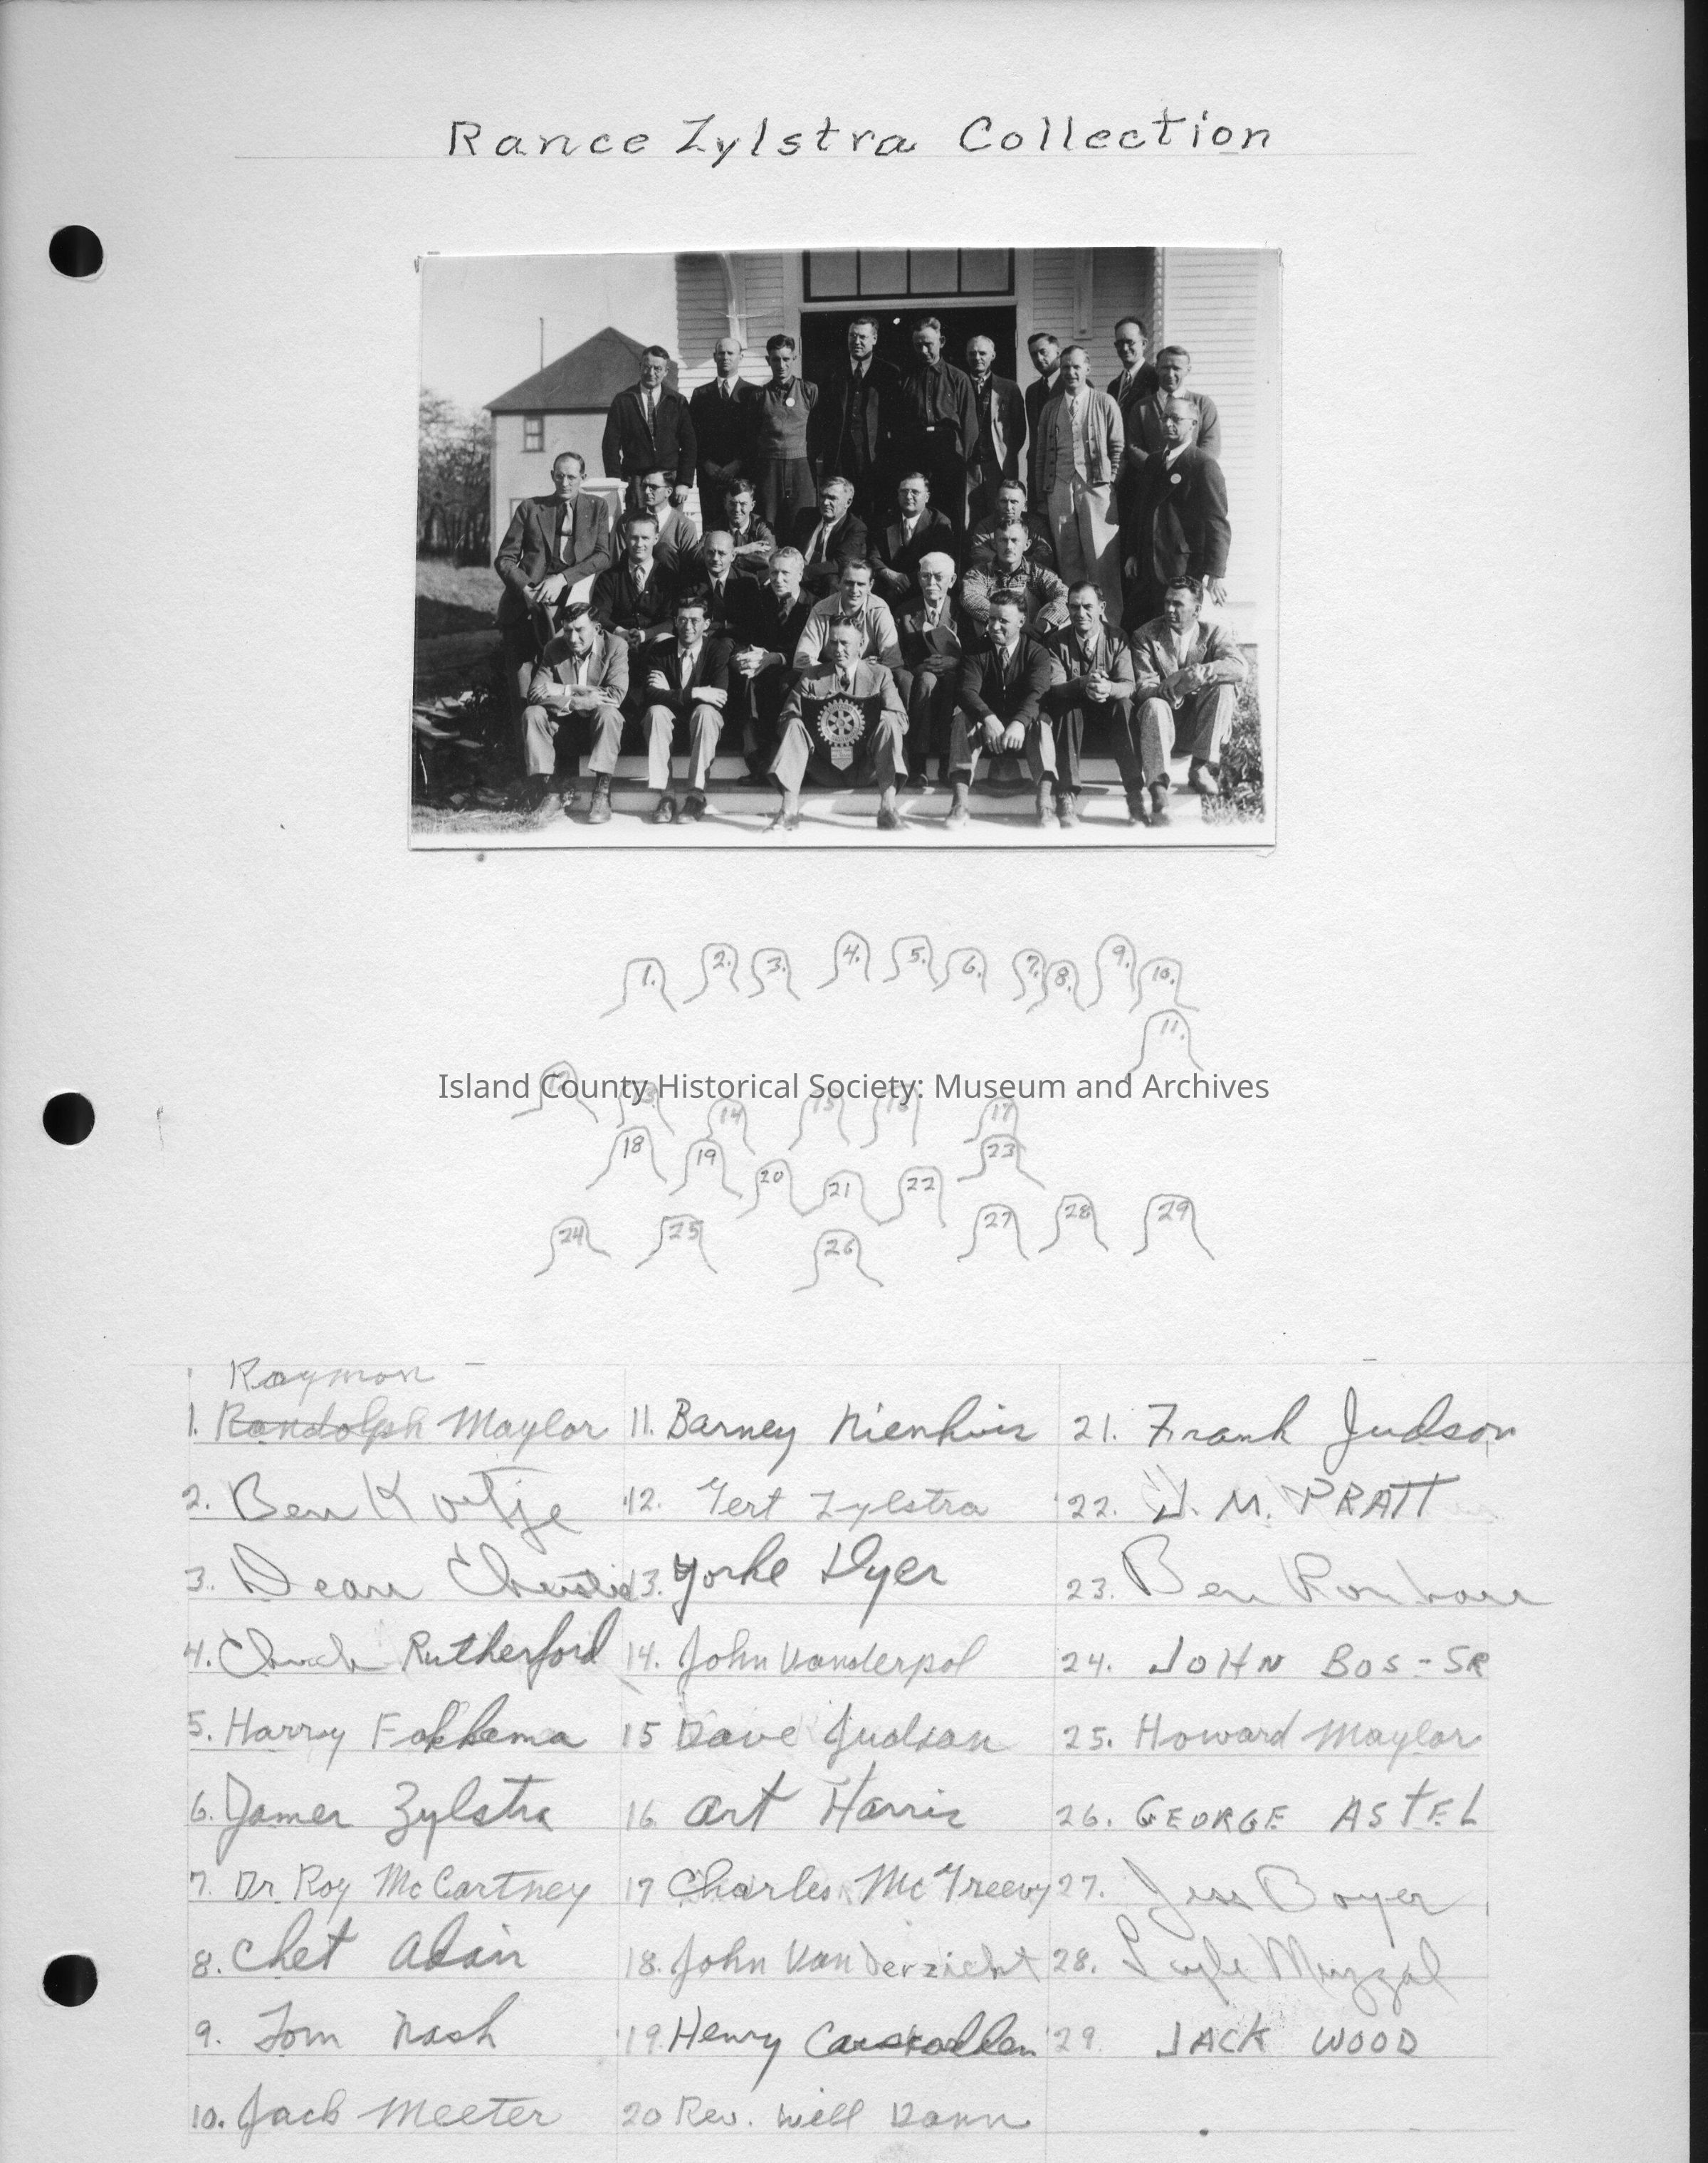 Rance Zylstra Collection
1. 2. 3. 4. 5. 6. 7. 8. 9. 10.
11.
Island County Historical Society: Museum and Archives
12 13. 14 15 16 17
18 19 20 21 22 23
24 25 26 27 28 29
Raymon
1. Randolph Maylor 11. Barney Nienhuis 21. Frank Judson
2. Ben Koetje 12. Gert Zylstra 22. J. M. PRATT
3. Dean Christie 13. Yorke Dyer 23. Ben
4. Chuck Rutherford 14. John Vanderpol 24. JOHN BOS-SR
5. Harry Fakkema 15 Dave Judson 25. Howard Maylor
6. James Zylstra 16. Art Harris 26. GEORGE ASTEL
7. Dr. Roy McCartney 17 Charles McGreevy 27. Jess Boyer
8. Chet Adair 18. John Vanderzicht 28. Lyle Muzzal
9. Tom Nash 19. Henry Carskadden 29 JACK WOOD
10. Jack Meeter 20 Rev. Will